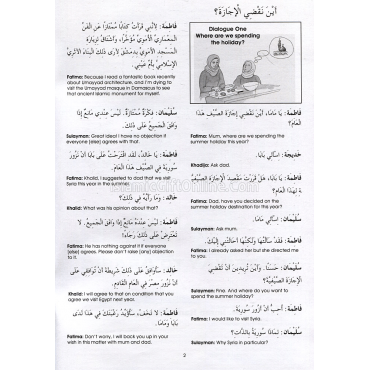 أَيْنَ نَقْضِي الْإِجَازَةَ؟
Dialogue One
Where are we spending
the holiday?
فَاطِمَة: يَا مَامَا، أَيْنَ نَقْضِي إِجَازَةَ الصَّيْفِ هَذَا
الْعَامَ؟
Fatima: Mum, where are we spending
the summer holiday this year?
خَدِيجَة: اِسْأَلِي بَابَا.
Khadija: Ask dad.
فَاطِمَة: يَا بَابَا، هَلْ قَرَّرْتَ مَقْصِدَ الْإِجَازَةِ الصَّيْفِيَّةِ
لِهَذَا الْعَامِ؟
Fatima: Dad, have you decided on the
summer holiday destination for this year?
سُلَيْمَان: اِسْأَلِي مَامَا.
Sulayman: Ask mum.
فَاطِمَة: لَقَدْ سَأَلْتُهَا وَلَكِنَّهَا أَحَالَتْنِي إِلَيْكَ.
Fatima: I already asked her but she directed me
to you.
سُلَيْمَان: حَسَنًا. وَأَيْنَ تُرِيدِينَ أَنْ نَقْضِيَ
الْإِجَازَةَ الصَّيْفِيَّةَ؟
Sulayman: Fine. And where do you want to
spend the summer holiday?
فَاطِمَة: أُحِبُّ أَنْ أَزُورَ سُورِيَة.
Fatima: I would like to visit Syria.
سُلَيْمَان: لِمَاذَا سُورِيَة بِالذَّاتِ؟
Sulayman: Why Syria in particular?
فَاطِمَة: لِأَنِّي قَرَأْتُ كِتَابًا مُمْتَازًا عَنِ الْفَنِّ
الْمِعْمَارِيِّ الْأُمَوِيِّ مُؤَخَّرًا، وَأَشْتَاقُ لِزِيَارَةِ
الْمَسْجِدِ الْأُمَوِيِّ بِدِمَشْقَ لِأَرَى ذَلِكَ الْبِنَاءَ الْأَثَرِيَّ
الْإِسْلَامِيَّ بِأُمِّ عَيْنِي.
Fatima: Because I read a fantastic book recently
about Umayyad architecture, and I'm dying to
visit the Umayyad mosque in Damascus to see
that ancient Islamic monument for myself.
سُلَيْمَان: فِكْرَةٌ مُمْتَازَةٌ. لَيْسَ عِنْدِي مَانِعٌ إِذَا
وَافَقَ الْجَمِيعُ عَلَى ذَلِكَ.
Sulayman: Great idea! I have no objection if
everyone (else) agrees with that.
فَاطِمَة: يَا خَالِد، لَقَدِ اقْتَرَحْتُ عَلَى بَابَا أَنْ نَزُورَ
سُورِيَة فِي الصَّيْفِ.
Fatima: Khalid, I suggested to dad that we visit
Syria this year in the summer.
خَالِد: وَمَا رَأْيُهُ فِي ذَلِكَ؟
Khalid: What was his opinion about that?
فَاطِمَة: لَيْسَ عِنْدَهُ مَانِعٌ إِذَا وَافَقَ الْجَمِيعُ. لَا
تَعْتَرِضْ عَلَى ذَلِكَ رَجَاءً.
Fatima: He has nothing against it if everyone
(else) agrees. Please don't take issue with that.
خَالِد: سَأُوَافِقُ عَلَى ذَلِكَ شَرِيطَةَ أَنْ تُوَافِقِي عَلَى
أَنْ نَزُورَ مِصْرَ فِي الْعَامِ الْقَادِمِ.
Khalid: I will agree to that on condition that you
agree we visit Egypt next year.
فَاطِمَة: لَا تَخَفْ، سَأُؤَيِّدُ رَغْبَتَكَ فِي هَذَا لَدَى مَامَا
وَبَابَا.
Fatima: Don't worry, I will back you up in your
wish in this matter with mum and dad.
2